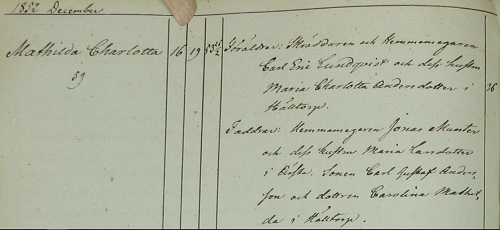 1852 December
Mathilda Charlotta 16 19 53½ Föräldrar: Skräddaren och Hemmansegaren
59
Carl Eric Lundqvist och dess hustru
Maria Charlotta Andersdotter i 36
Hälltorp.
Faddrar: Hemmansegaren Jonas
och dess hustru Maria Larsdotter
i Sonen Carl Gustaf Anders-
son och dottren Carolina Mathil-
da i Hälltorp.